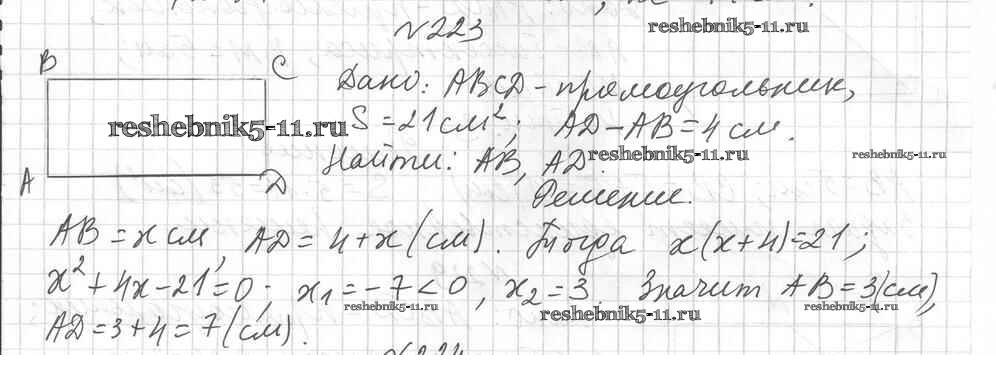 №223
reshebnik5-11.ru
B C
Дано: ABCD - прямоугольник,
reshebnik5-11.ru S = 21 см²; AD - AB = 4 см.
Найти: AB, AD. reshebnik5-11.ru reshebnik5-11.ru
A D
Решение.
AB = x см, AD = 4 + x (см). Тогда x(x+4)=21;
x² + 4x - 21 = 0; x₁ = -7 < 0, x₂ = 3. Значит AB = 3 (см),
reshebnik5-11.ru reshebnik5-11.ru reshebnik5-11.ru
AD = 3 + 4 = 7 (см).